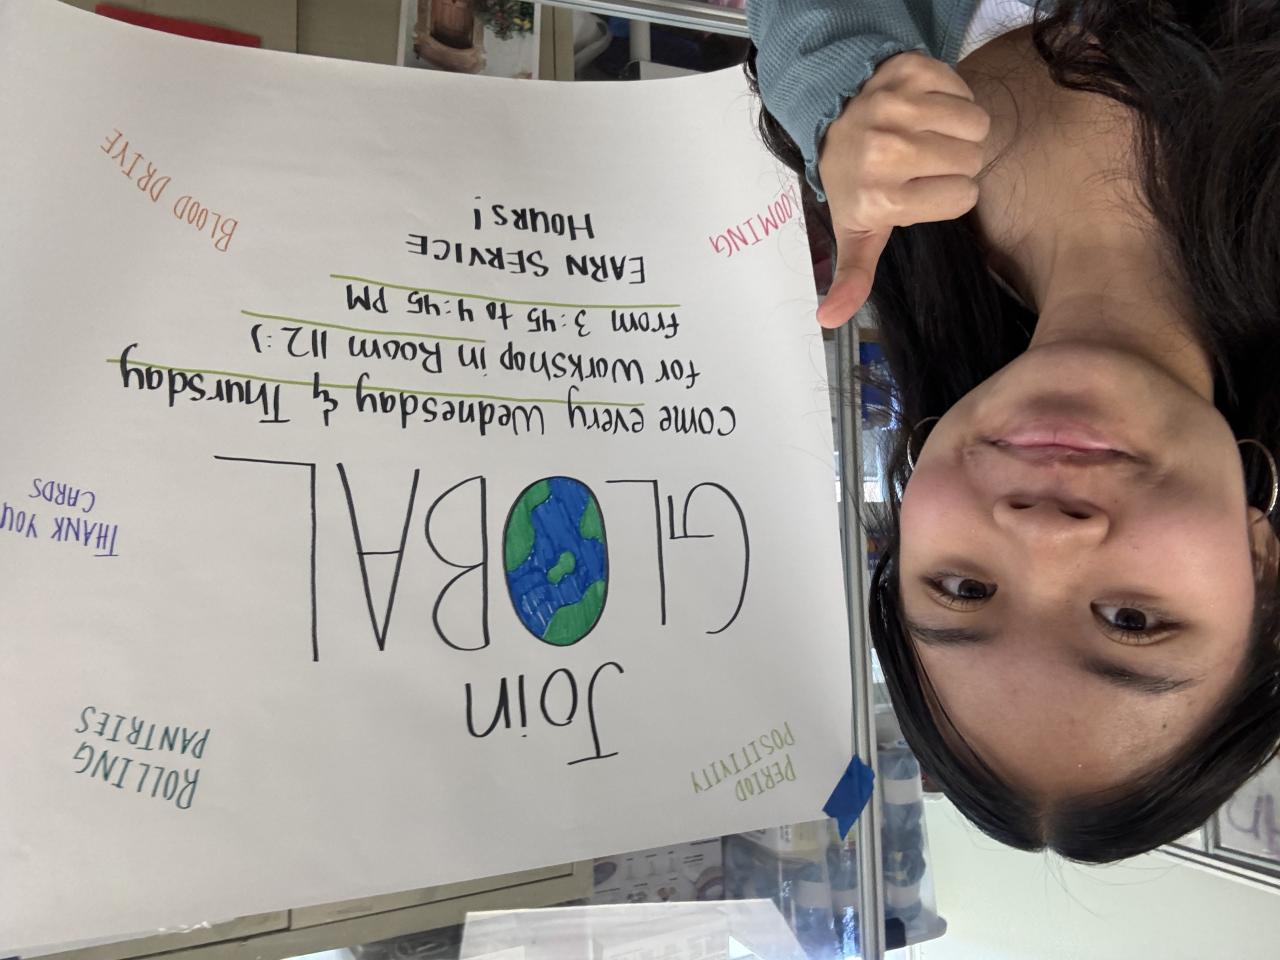 PERIOD
POSITIVITY
Join
ROLLING
PANTRIES
GLOBAL
THANK YOU
CARDS
come every Wednesday & Thursday
for Workshop in Room 112 :)
from 3:45 to 4:45 PM
EARN SERVICE
HOURS!
BLOOD DRIVE